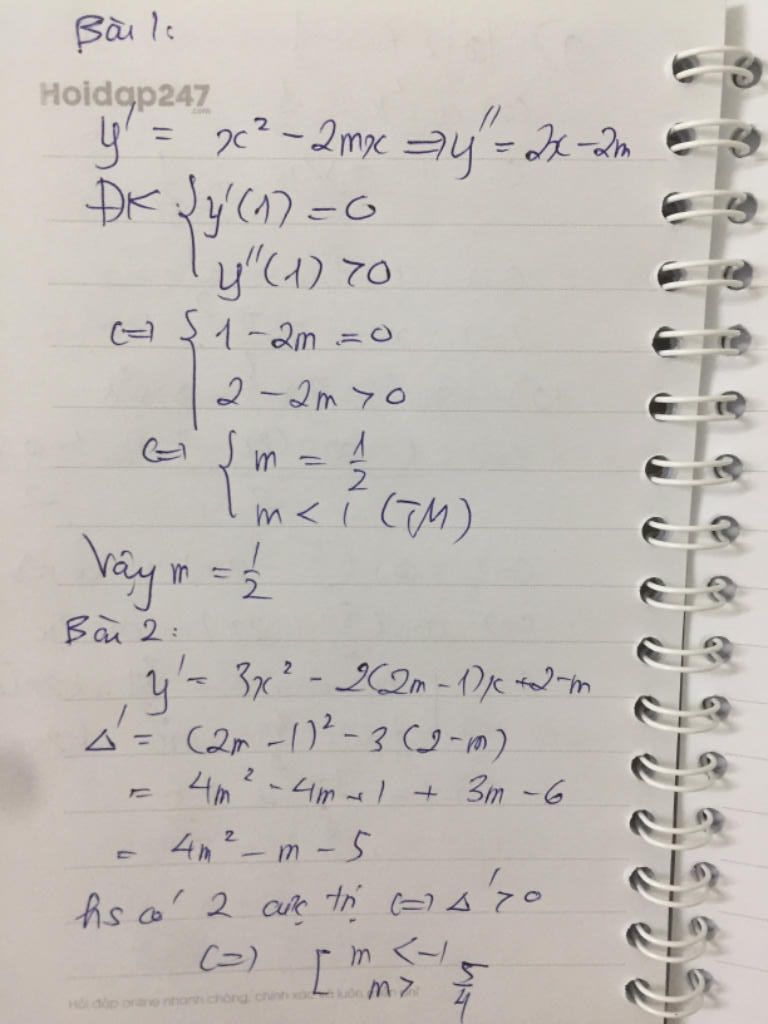 Bài 1:
Hoidap247
.com
y' = x² - 2mx => y'' = 2x - 2m
ĐK { y'(1) = 0
y''(1) > 0
<=> { 1 - 2m = 0
2 - 2m > 0
<=> { m = 1/2
m < 1 (TM)
Vậy m = 1/2
Bài 2:
y' = 3x² - 2(2m - 1)x + 2 - m
Δ' = (2m - 1)² - 3(2 - m)
= 4m² - 4m + 1 + 3m - 6
= 4m² - m - 5
hs có 2 cực trị <=> Δ' > 0
<=> [ m < -1
m > 5/4
Hỏi đáp online nhanh chóng, chính xác và luôn miễn phí